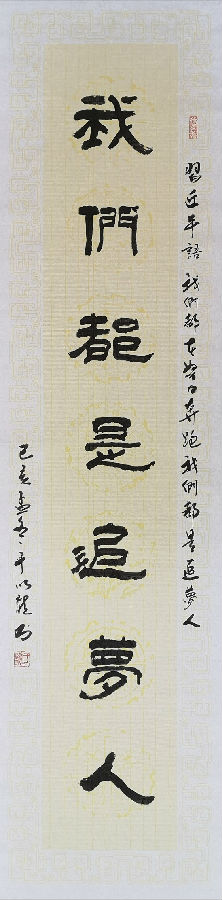 習近平語 我們都在努力奔跑 我們都是追夢人
我們都是追夢人
己亥孟冬